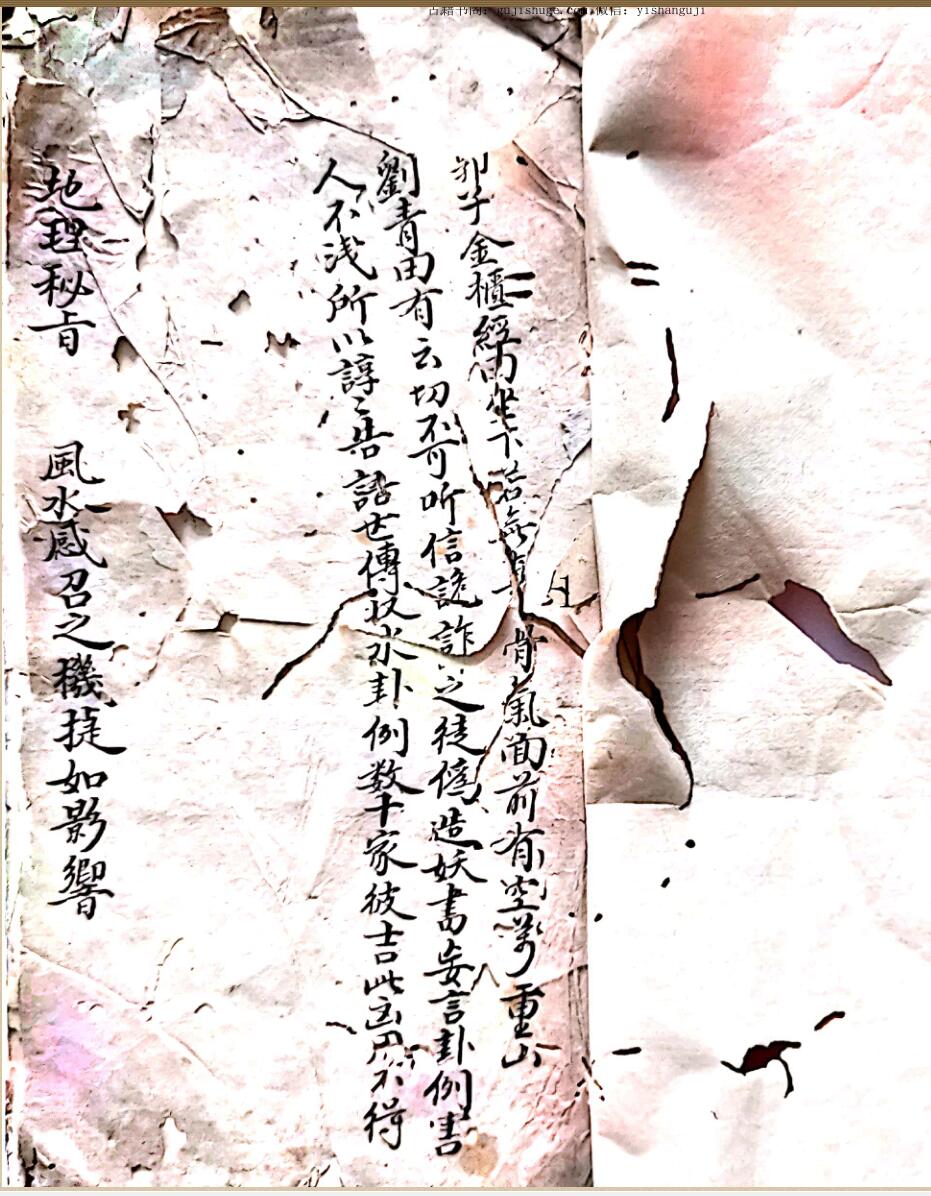 古籍书阁：gujishuge.com 微信：yishanguji
子金櫃經 坐下若無 骨氣面前有空萬重山
劉青田有云切不可听信譫詐之徒僞造妖書妄言卦例害
人不浅所以諄〻告語世傳 水卦例数十家彼吉此凶用不得
地理秘旨　風水感召之機捷如影響